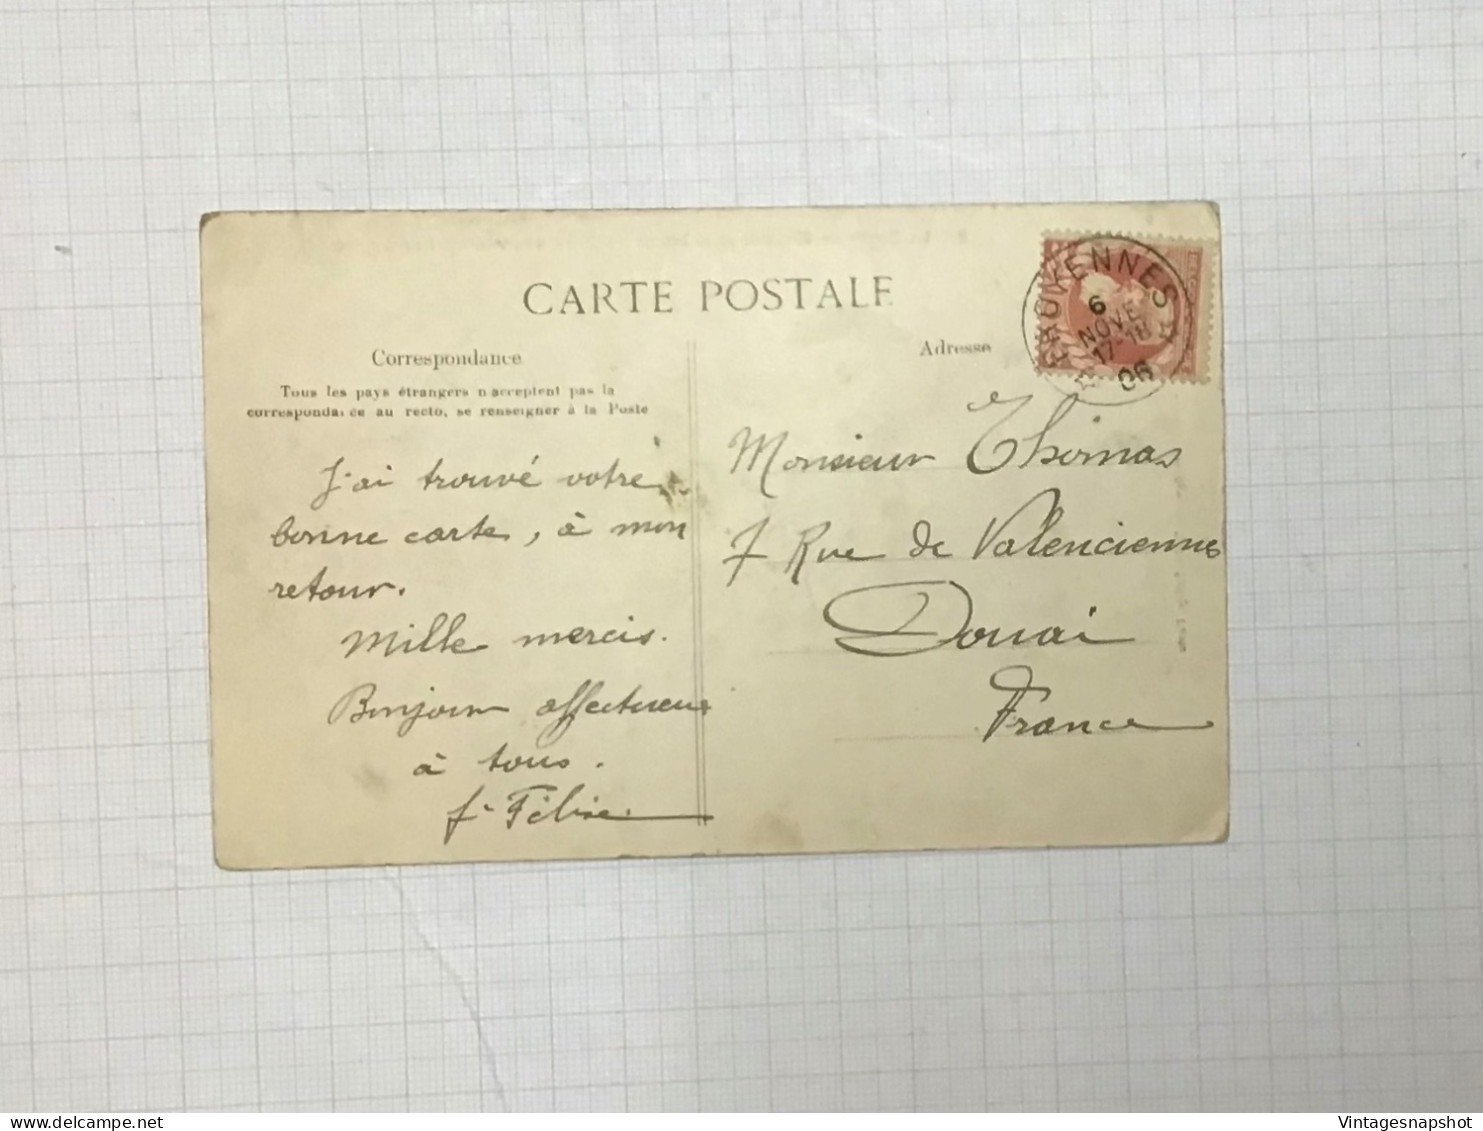 CARTE POSTALE
Correspondance
Tous les pays étrangers n'acceptent pas la
correspondance au recto, se renseigner à la Poste
J'ai trouvé votre
bonne carte, à mon
retour.
Mille mercis.
Bonjour affectueux
à tous.
Adresse
FROYENNES
6
NOVE
17-18
06
Monsieur Thomas
7 Rue de Valenciennes
Douai
France
Vintagesnapshot